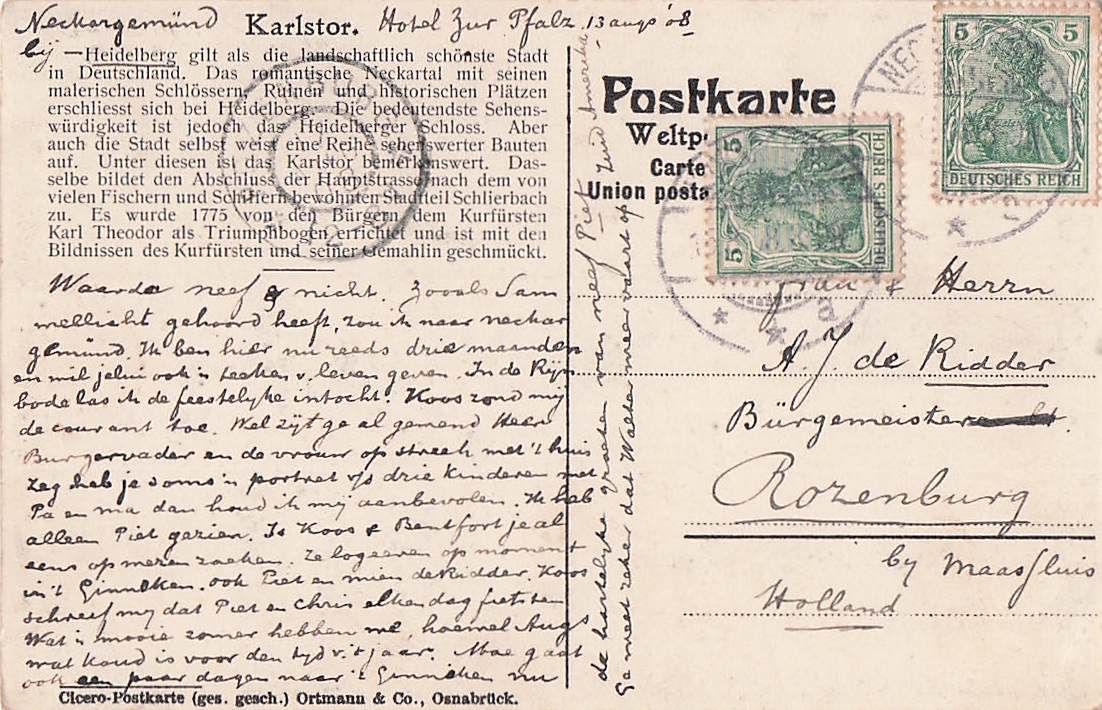 Neckargemünd Karlstor. Hotel Zur Pfalz 13 augs '08
bij — Heidelberg gilt als die landschaftlich schönste Stadt
in Deutschland. Das romantische Neckartal mit seinen
malerischen Schlössern, Ruinen und historischen Plätzen
erschliesst sich bei Heidelberg. Die bedeutendste Sehens-
würdigkeit ist jedoch das Heidelberger Schloss. Aber
auch die Stadt selbst weist eine Reihe sehenswerter Bauten
auf. Unter diesen ist das Karlstor bemerkenswert. Das-
selbe bildet den Abschluss der Hauptstrasse nach dem von
vielen Fischern und Schiffern bewohnten Stadtteil Schlierbach
zu. Es wurde 1775 von den Bürgern dem Kurfürsten
Karl Theodor als Triumphbogen errichtet und ist mit den
Bildnissen des Kurfürsten und seiner Gemahlin geschmückt.
Waarde neef & nicht. Zooals Sam
wellicht gehoord heeft, zou ik naar neckar
gemünd. Ik ben hier nu reeds drie maanden
en wil jelui ook 'n teeken v. leven geven. In de Rijn
bode las ik de feestelijke intocht. Koos zond mij
de courant toe. Wel zijt ge al gewend Heer
Burgervader en de vrouw op streek met 't huis
Zeg heb je soms 'n portret v/s drie kinderen met
Pa en ma dan houd ik mij aanbevolen. Ik heb
alleen Piet gezien. Is Koos & Bentfort je al
eens op wezen zoeken. Ze logeeren op moment
in 't Ginneken. ook Piet en mien de Ridder. Koos
schreef mij dat Piet en Chris elken dag fietsten
Wat 'n mooie zomer hebben we, hoewel Augs
wat koud is voor den tijd v. 't jaar. Moe gaat
ook een paar dagen naar 't Ginneken nu
Cicero-Postkarte (ges. gesch.) Ortmann & Co., Osnabrück.
de hartelijke groeten van neef Piet Zuid Amerika
Ge weet zeker dat Walter weer vaart op
Postkarte
Weltp
Carte
Union posta
5 5
DEUTSCHES REICH
5 5
DEUTSCHES REICH
NEC
Frau & Herrn
A. J. de Ridder
Bürgemeister
Rozenburg
by Maassluis
Holland